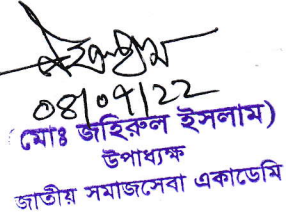 08/09/22
(মোঃ জহিরুল ইসলাম)
উপাধ্যক্ষ
জাতীয় সমাজসেবা একাডেমি